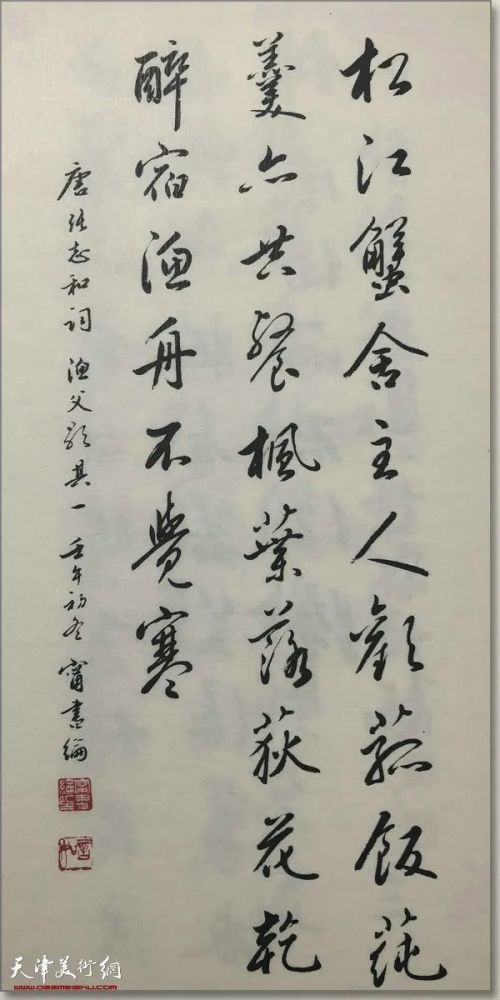 松江蟹舍主人歡菰飯蒓
羹亦共餐楓葉落荻花乾
醉宿漁舟不覺寒
唐張志和詞漁父歌其一壬午初冬甯書綸
天津美術網
www.022meishu.com